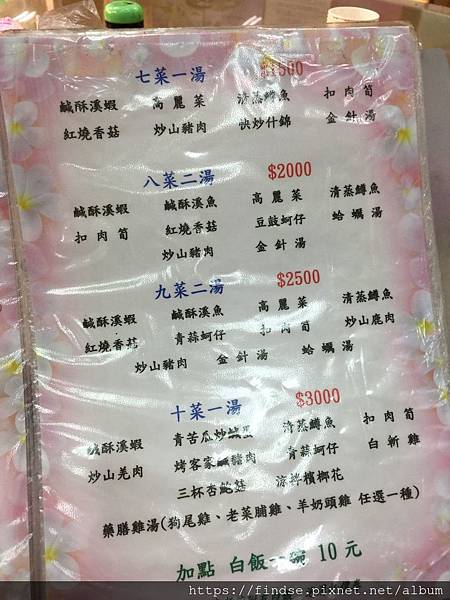 七菜一湯 $1500
鹹酥溪蝦 高麗菜 清蒸鱒魚 扣肉筍
紅燒香菇 炒山豬肉 快炒什錦 金針湯
八菜二湯 $2000
鹹酥溪蝦 鹹酥溪魚 高麗菜 清蒸鱒魚
扣肉筍 紅燒香菇 豆鼓蚵仔 蛤蠣湯
炒山豬肉 金針湯
九菜二湯 $2500
鹹酥溪蝦 鹹酥溪魚 高麗菜 清蒸鱒魚
紅燒香菇 青蒜蚵仔 扣肉筍 炒山鹿肉
炒山豬肉 金針湯 蛤蠣湯
十菜一湯 $3000
鹹酥溪蝦 青苦瓜炒鹹蛋 清蒸鱒魚 扣肉筍
炒山羌肉 烤客家鹹豬肉 青蒜蚵仔 白斬雞
三杯杏鮑菇 涼拌檳榔花
藥膳雞湯(狗尾雞、老菜脯雞、羊奶頭雞 任選一種)
加點 白飯一碗 10 元
https://findse.pixnet.net/album